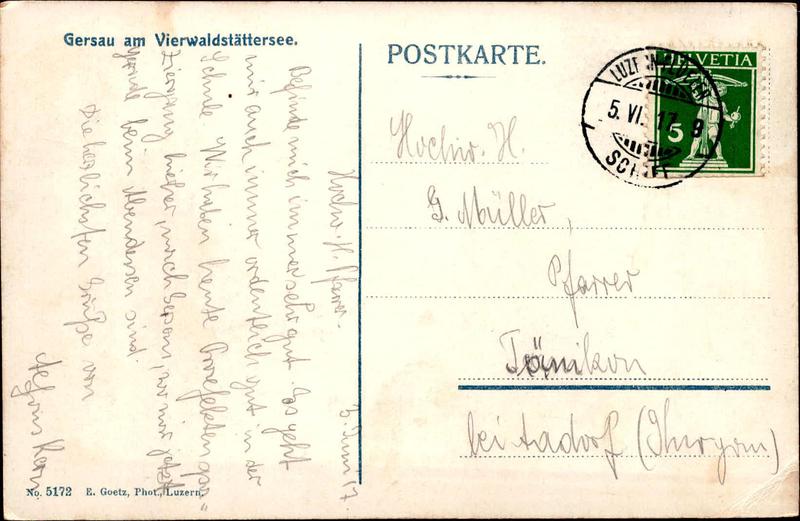 Gersau am Vierwaldstättersee.
POSTKARTE.
HELVETIA
5
LUZERN-FLÜELEN
5. VI. 17. 8
SCHIFF
Hochw. H.
G. Müller,
Pfarrer
Tänikon
bei Aadorf (Thurgau)
5. Juni 17.
Hochw. H. Pfarrer.
Befinde mich immer sehr gut. Es geht
mir auch immer ordentlich gut in der
Schule. Wir haben heute Präfektenspa-
ziergang hieher, nach Gersau, wo wir jetzt
gerade beim Abendessen sind.
Die herzlichsten Grüße von
No. 5172 E. Goetz, Phot., Luzern.